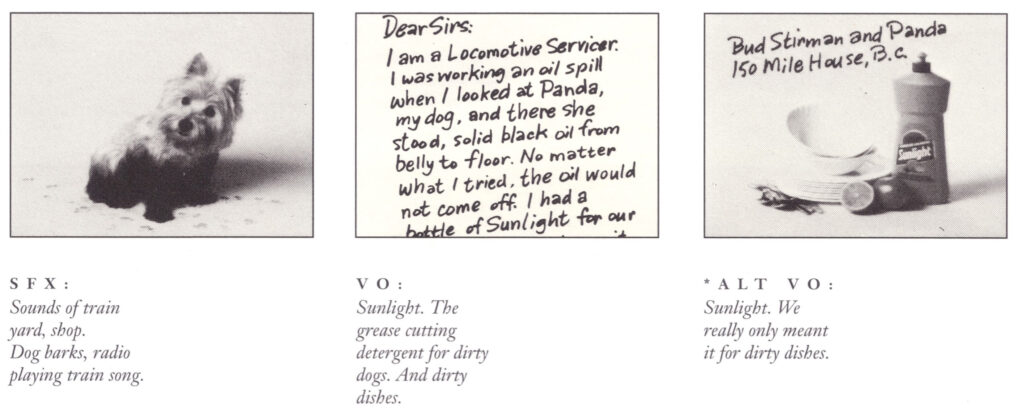 Dear Sirs:
I am a Locomotive Servicer.
I was working an oil spill
when I looked at Panda,
my dog, and there she
stood, solid black oil from
belly to floor. No matter
what I tried, the oil would
not come off. I had a
bottle of Sunlight for our
Bud Stirman and Panda
150 Mile House, B.C.
Sunlight
SFX:
Sounds of train
yard, shop.
Dog barks, radio
playing train song.
VO:
Sunlight. The
grease cutting
detergent for dirty
dogs. And dirty
dishes.
*ALT VO:
Sunlight. We
really only meant
it for dirty dishes.